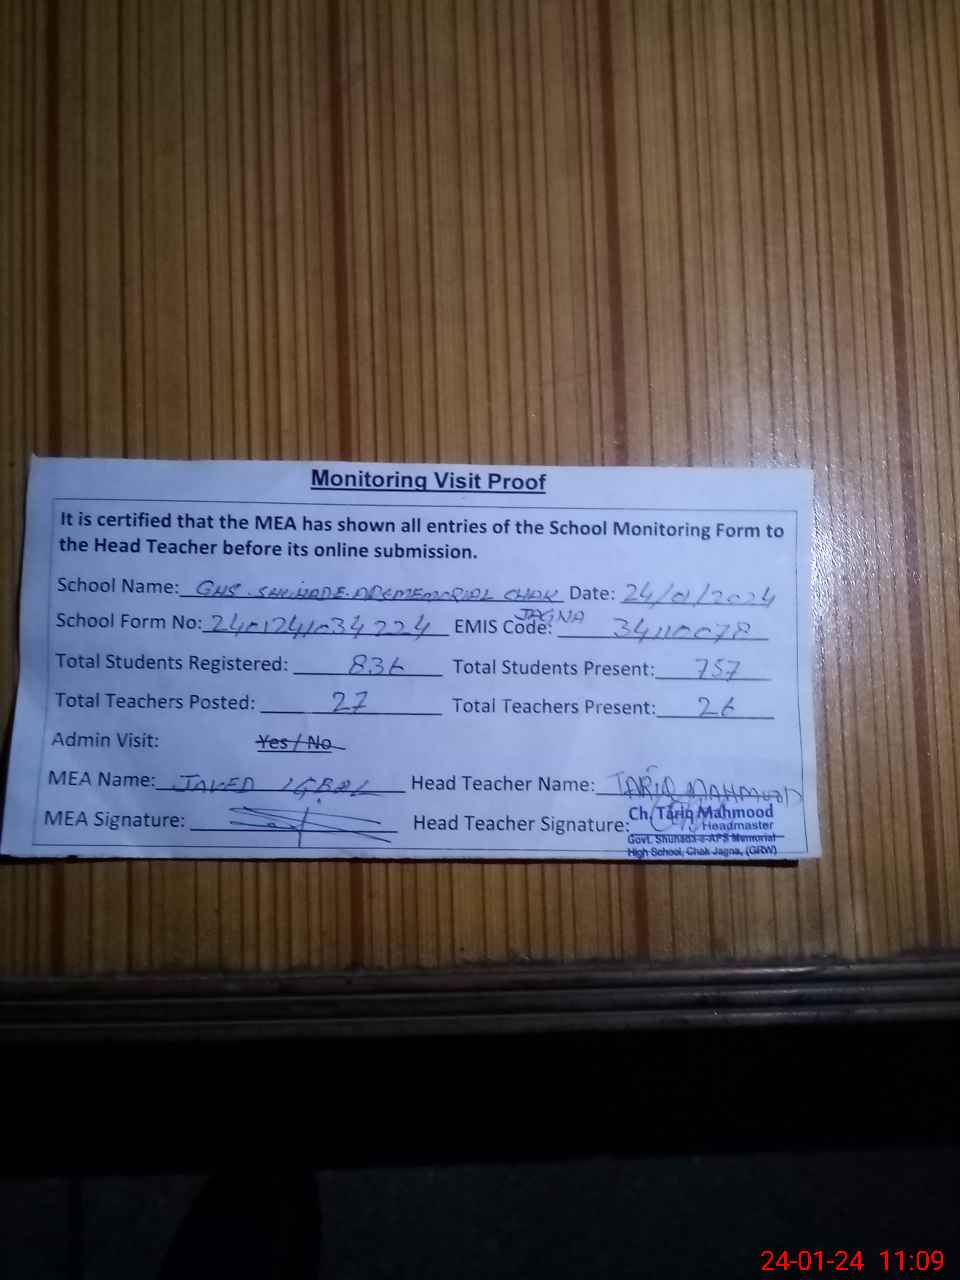 Monitoring Visit Proof
It is certified that the MEA has shown all entries of the School Monitoring Form to
the Head Teacher before its online submission.
School Name: GHS SHUHADE APS MEMORIAL CHAK Date: 24/01/2024
JAGNA
School Form No: 2401241034224 EMIS Code: 34110078
Total Students Registered: 836 Total Students Present: 757
Total Teachers Posted: 27 Total Teachers Present: 26
Admin Visit: Yes / No
MEA Name: JAVED IQBAL Head Teacher Name: TARIQ MAHMOOD
MEA Signature: Head Teacher Signature:
Ch. Tariq Mahmood
Headmaster
Govt. Shuhada-e-APS Memorial
High School, Chak Jagna, (GRW)
24-01-24 11:09